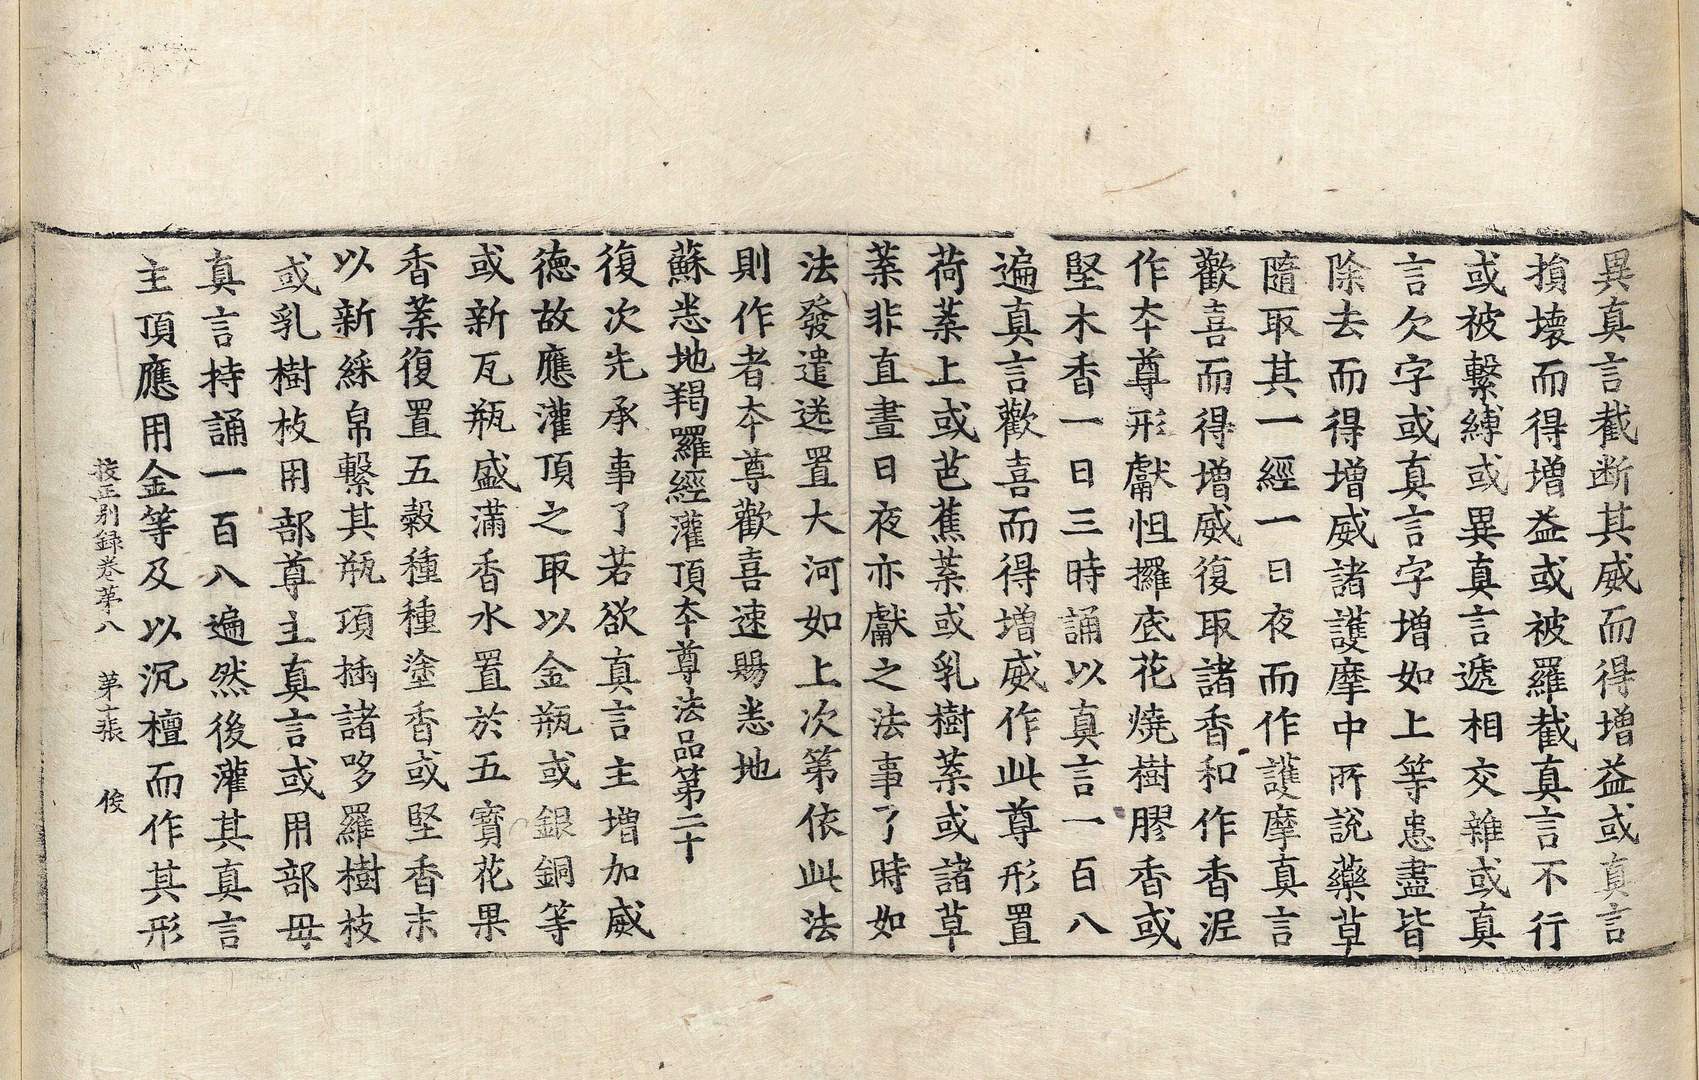 異真言截断其威而得增益或真言
損壞而得增益或被羅截真言不行
或被繫縛或異真言遞相交雜或真
言欠字或真言字增如上等恚盡皆
除去而得增威諸護摩中所說藥草
隨取其一經一日夜而作護摩真言
歡喜而得增威復取諸香和作香泥
作夲尊形獻怛攞底花燒樹膠香或
堅木香一日三時誦以真言一百八
遍真言歡喜而得增威作此尊形置
荷葉上或芭蕉葉或乳樹葉或諸草
葉非直晝日夜亦獻之法事了時如
法發遣送置大河如上次第依此法
則作者夲尊歡喜速賜悉地
蘇悉地羯囉經灌頂夲尊法品第二十
復次先承事了若欲真言主增加威
德故應灌頂之取以金瓶或銀銅等
或新瓦瓶盛滿香水置於五寶花果
香葉復置五糓種種塗香或堅香末
以新綵帛繫其瓶項插諸哆羅樹枝
或乳樹枝用部尊主真言或用部母
真言持誦一百八遍然後灌其真言
主頂應用金等及以沉檀而作其形
挍正别録卷苐八　苐十張　俊